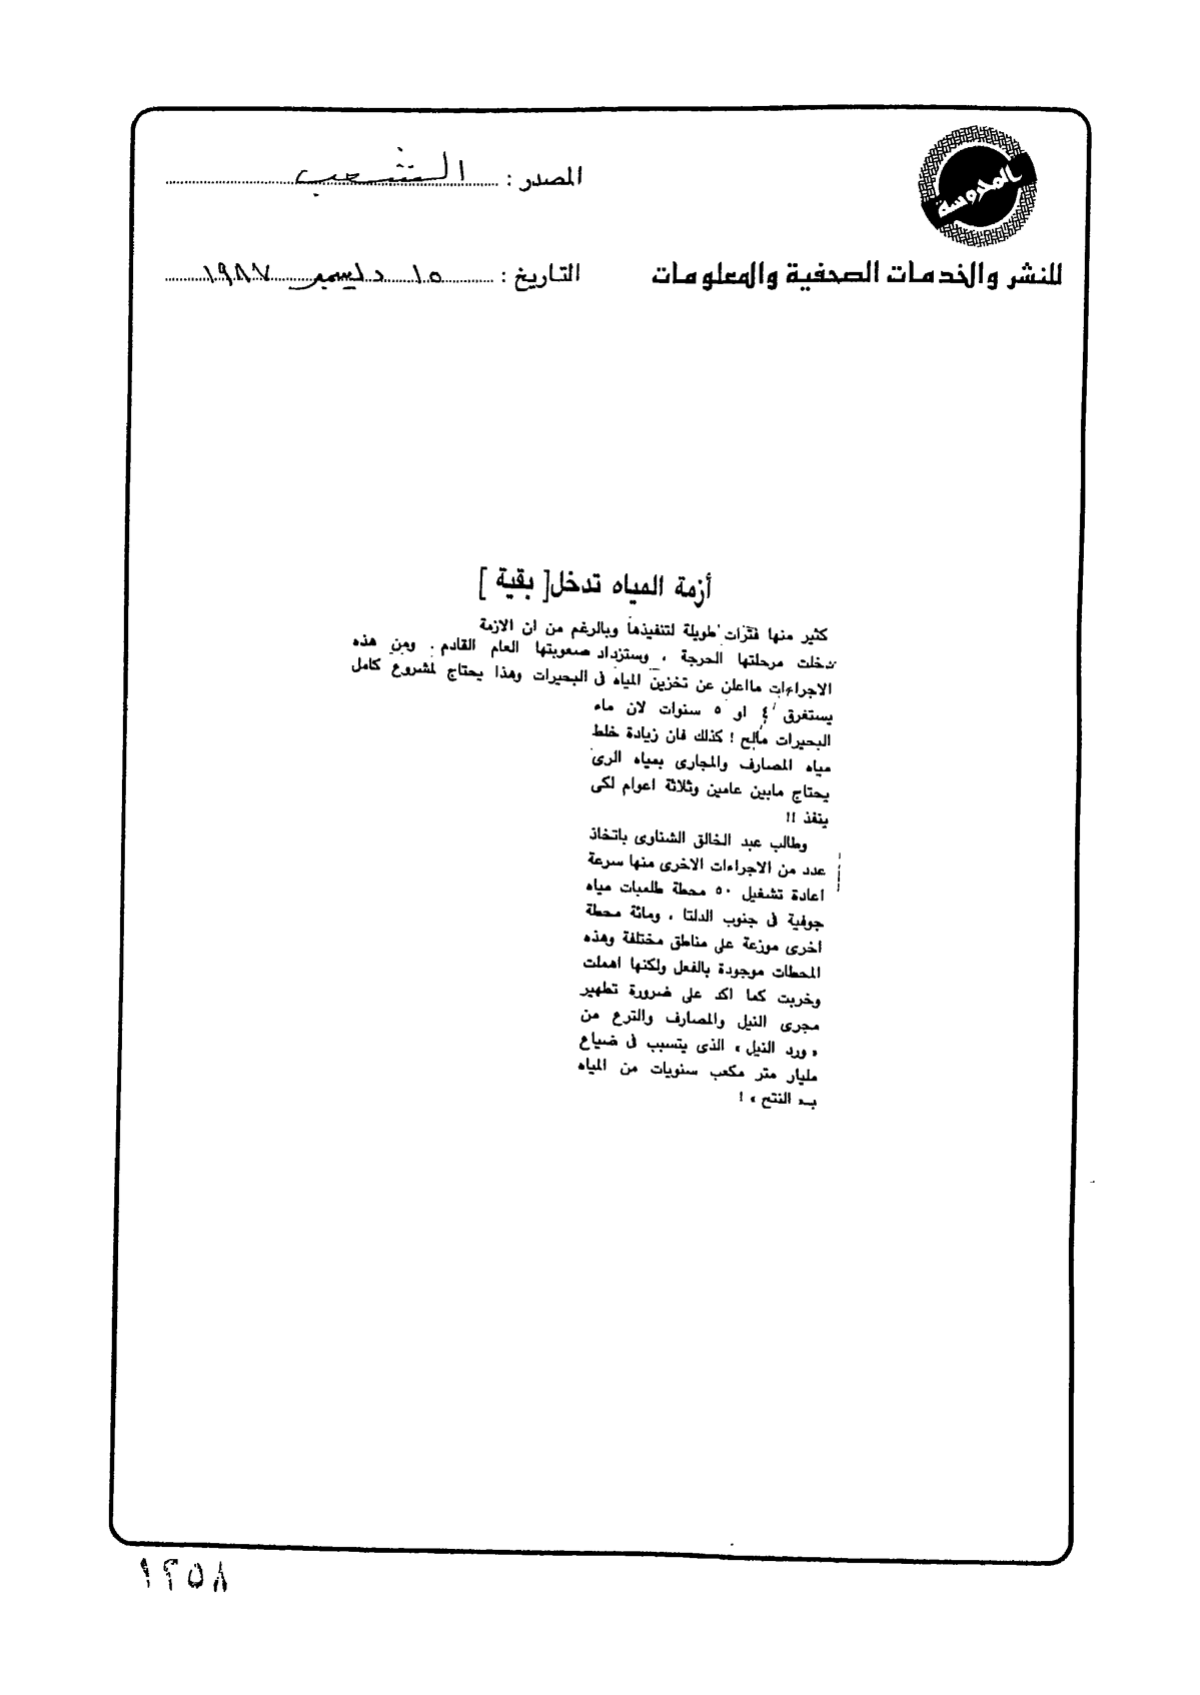 المحروسة
للنشر والخدمات الصحفية والمعلومات
المصدر : الشعب
التاريخ : ١٥ ديسمبر ١٩٨٧
أزمة المياه تدخل [ بقية ]
كثير منها فترات طويلة لتنفيذها وبالرغم من ان الازمة
دخلت مرحلتها الحرجة ، وستزداد صعوبتها العام القادم . ومن هذه
الاجراءات مااعلن عن تخزين المياه فى البحيرات وهذا يحتاج لمشروع كامل
يستغرق ٤ او ٥ سنوات لان ماء
البحيرات مالح ! كذلك فان زيادة خلط
مياه المصارف والمجارى بمياه الرى
يحتاج مابين عامين وثلاثة اعوام لكى
ينفذ !!
وطالب عبد الخالق الشناوى باتخاذ
عدد من الاجراءات الاخرى منها سرعة
اعادة تشغيل ٥٠ محطة طلمبات مياه
جوفية فى جنوب الدلتا ، ومائة محطة
اخرى موزعة على مناطق مختلفة وهذه
المحطات موجودة بالفعل ولكنها اهملت
وخربت كما اكد على ضرورة تطهير
مجرى النيل والمصارف والترع من
« ورد النيل » الذى يتسبب فى ضياع
مليار متر مكعب سنويات من المياه
بـ« النتح » !
١٢٥٨